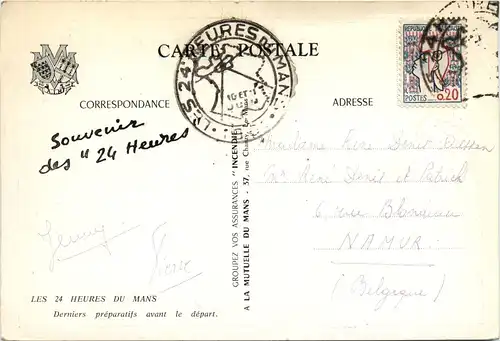 CARTE POSTALE
LES 24 HEURES DU MANS
REPUBLIQUE FRANCAISE
POSTES 0,20
CORRESPONDANCE
ADRESSE
Souvenir
des "24 Heures
Jenny
Pierre
GROUPEZ VOS ASSURANCES "INCENDIE"
A LA MUTUELLE DU MANS - 37, rue
Madame René Denit
Mr René Denit et Patrick
6 rue
NAMUR
(Belgique)
LES 24 HEURES DU MANS
Derniers préparatifs avant le départ.